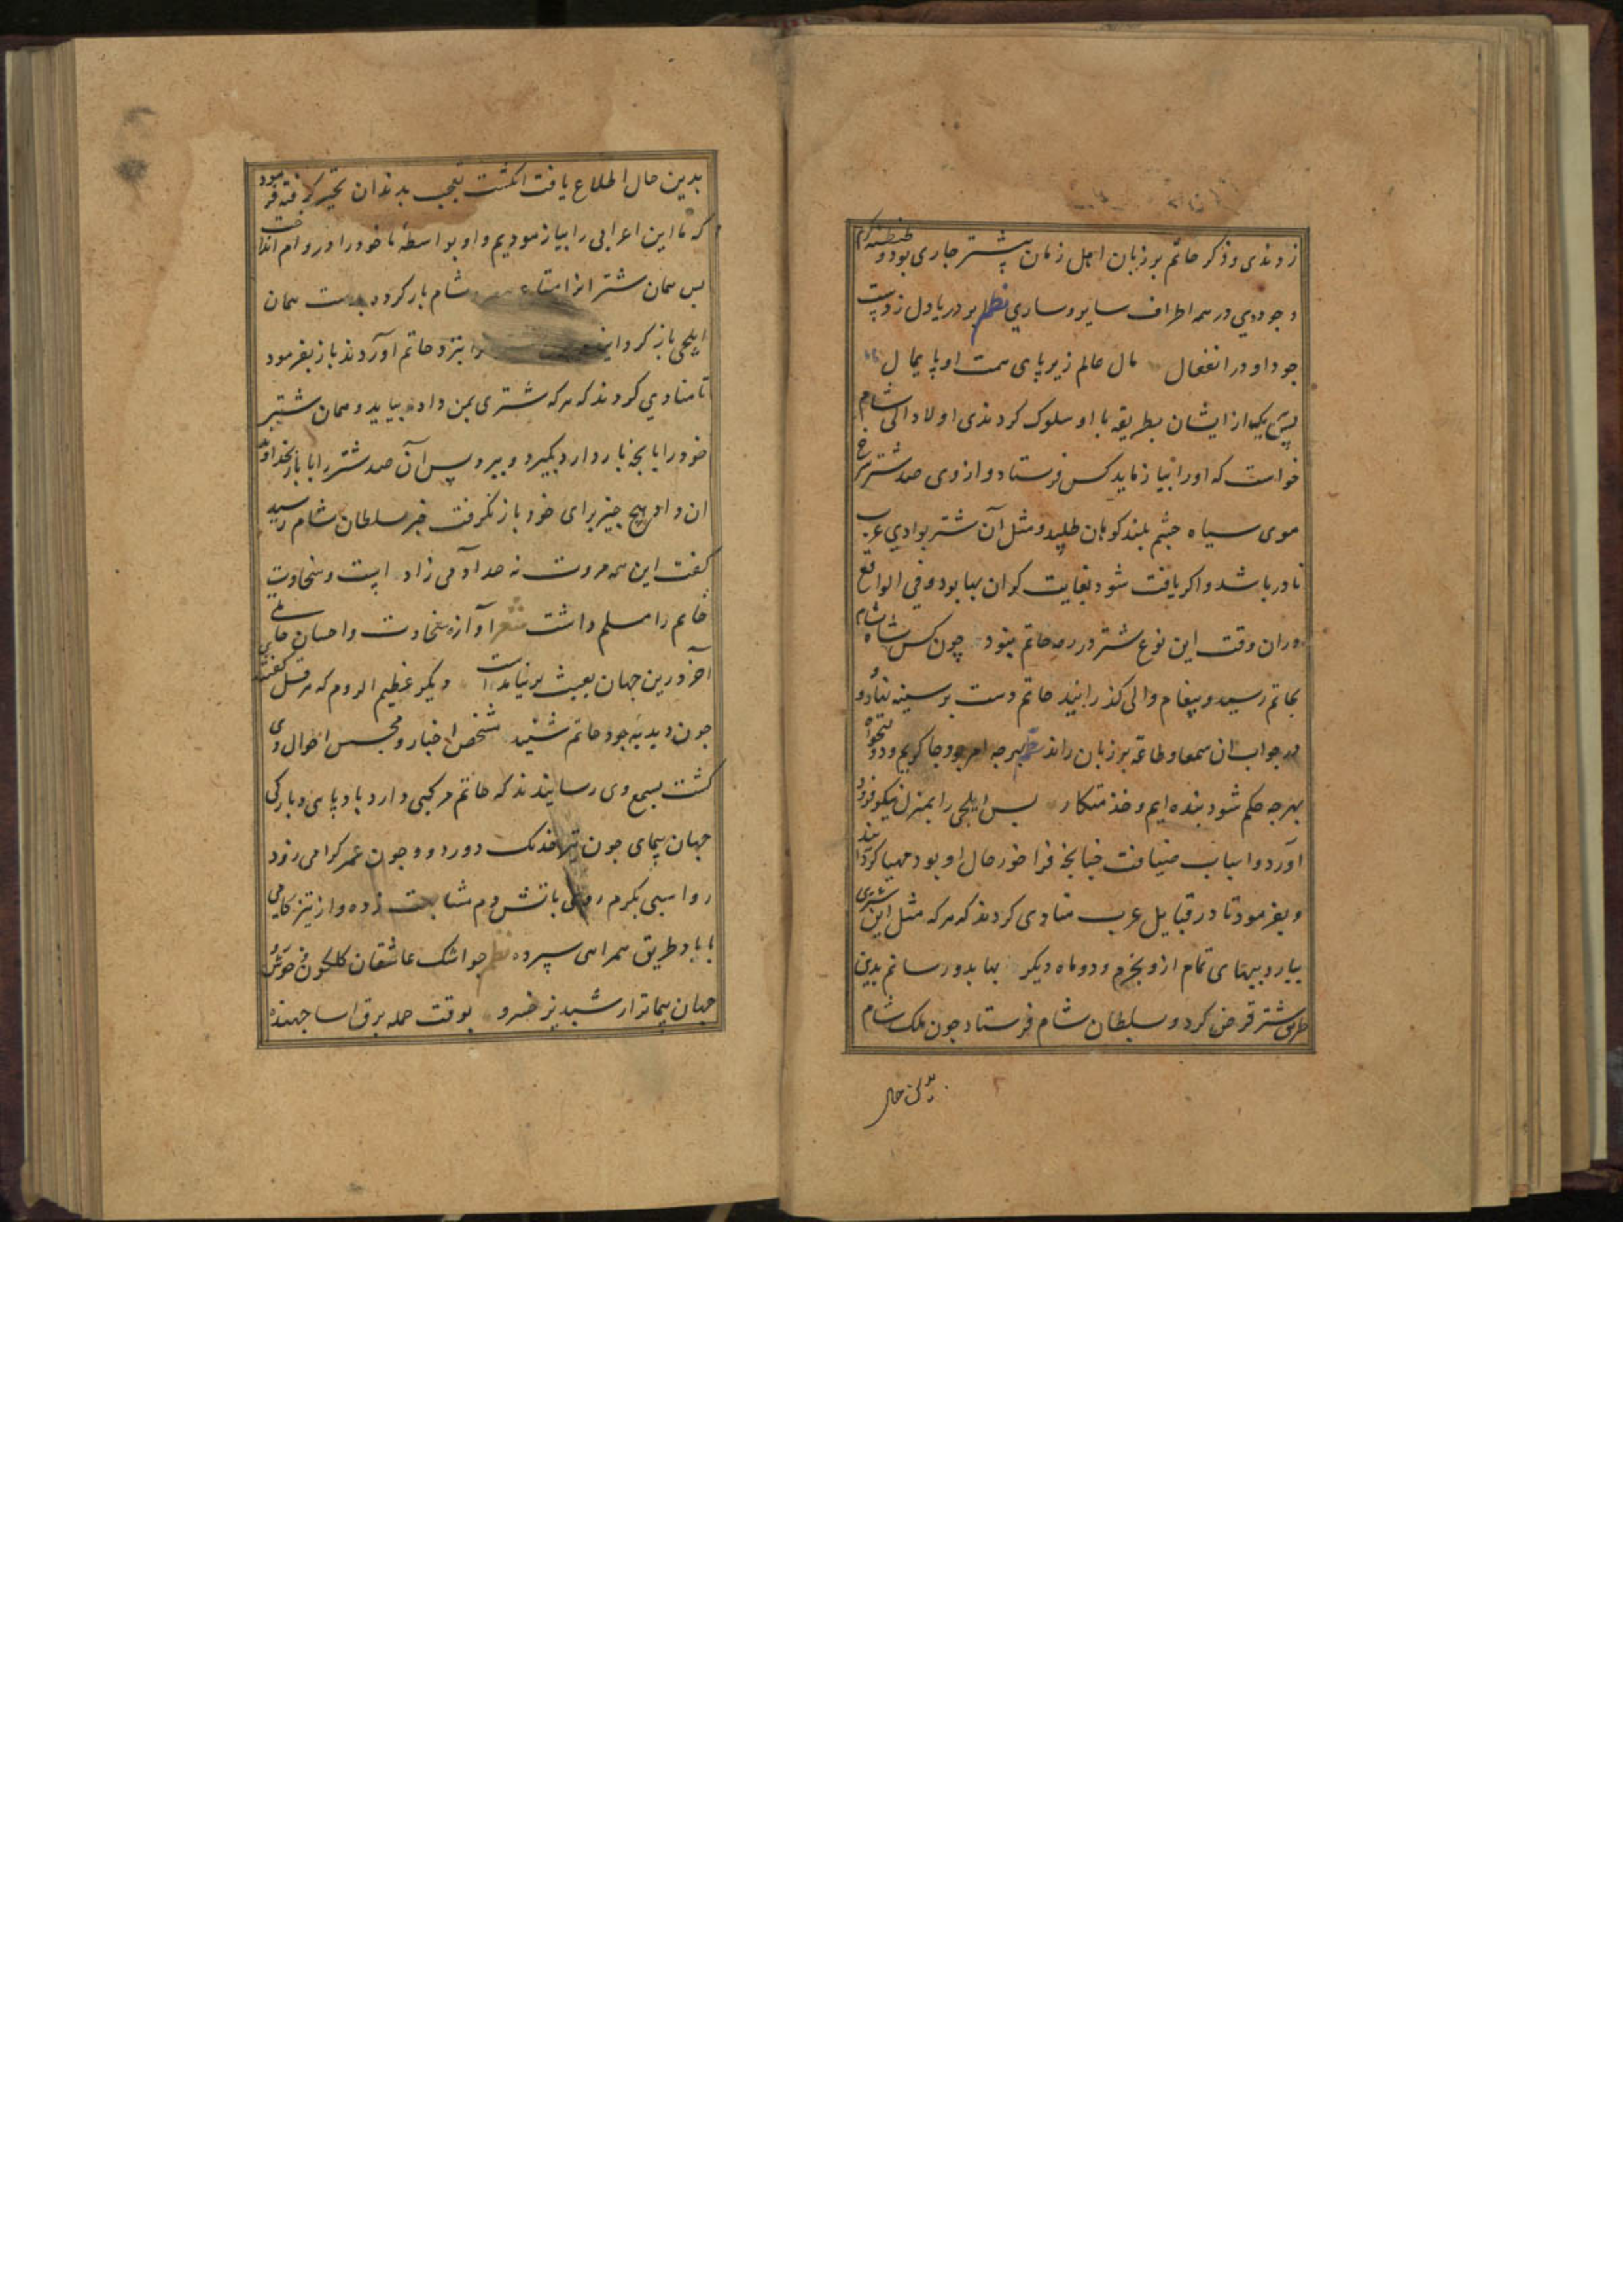 زدندی و ذکر حاتم بر زبان اهل زمان پیشتر جاری بود و طنطنه کرم
و جود وی در همه اطراف سایر و ساری نظم بود دریا دل ز دست
جود او در انفعال مال عالم زیر پای همت او پایمال
پس هر یک از ایشان بطریقه با او سلوک کردندی اولا والی شام
خواست که او را بیازماید کس فرستاد و از وی صد شتر سرخ
موی سیاه چشم بلند کوهان طلبید و مثل آن شتر بوادی عرب
نادر باشد و اکر یافت شود بغایت کران بها بود و فی الواقع
دران وقت این نوع شتر در رمه حاتم نبود چون کس شاه شام
بحاتم رسید و پیغام والی کذرانید حاتم دست بر سینه نهاد و
در جواب ان سمعا و طاعة بر زبان راند نظم هرچه امر بود چاکریم و دولتخواه
بهرچه حکم شود بنده ایم و خذمتکار پس ایلچی را بمنزل نیکو فرود
اورد و اسباب ضیافت چنانچه فراخور حال او بود مهیا کردانید
و بفرمود تا در قبایل عرب منادی کردند که هر که مثل این شتری
بیارد ببهای تمام ازو بخرم و دو ماه دیکر بها بدو رسانم بدین
طریق شتر قرض کرد و بسلطان شام فرستاد چون ملک شام
بدین حال
بدین حال اطلاع یافت انکشت تعجب بدندان تحیر کرفته فرمود
که ما این اعرابی را بیازمودیم و او بواسطه ما خود را در وام انداخت
پس همان شتر انرا متاع شام بار کرده بدست همان
ایلچی باز کردانید را بنزد حاتم آوردند باز بفرمود
تا منادی کردند که هر که شتری بمن داده بیاید و همان شتر
خود را با بچه بار دارد بکیرد و ببرد پس آن صد شتر را با بار بخداوند
ان داد هیچ چیز برای خود باز نکرفت خبر سلطان شام رسید
کفت این همه مروت نه حد آدمی زاد است و سخاوت
حاتم را مسلم داشت شعر آوازه سخاوت و احسان حاتمی
آخر درین جهان بعبث بر نیامد است دیکر عظیم الروم که هرقل کفتندی
چون دبدبه جود حاتم شنید متفحص اخبار و متجسس احوال وی
کشت بسمع وی رسانیدند که حاتم مرکبی دارد باد پای و بارکی
جهان پیمای چون تیر خدنک دور دو و چون عمر کرامی زود
رو اسبی بکرم روی باتش دم مشابهت زده و از تیز کامی
با باد طریق همراهی سپرده نظم چو اشک عاشقان کلکون و خوش رو
جهان پیماتر از شبدیز خسرو بوقت حمله برق اسا جهنده